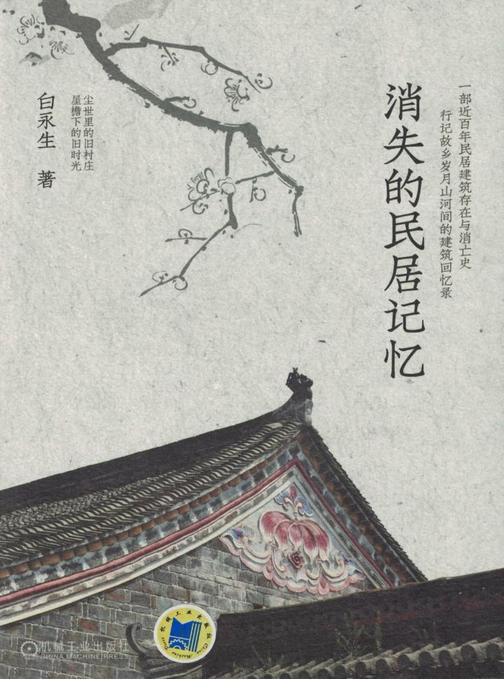 一部近百年民居建筑存在与消亡史
行记故乡岁月山河间的建筑回忆录
消失的民居记忆
尘世里的旧村庄
屋檐下的旧时光
白永生 著
机械工业出版社
CHINA MACHINE PRESS